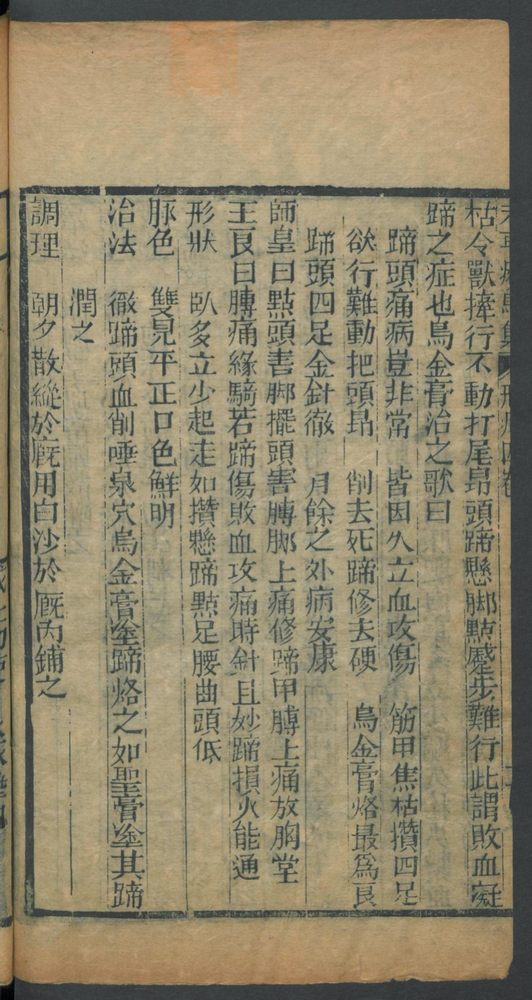 枯令獸擡行不動打尾昂頭蹄懸脚點蹙步難行此謂敗血凝
蹄之症也烏金膏治之歌曰
蹄頭痛病豈非常 皆因久立血攻傷 筋甲焦枯攢四足
欲行難動把頭昂 削去死蹄修去硬 烏金膏烙最爲良
蹄頭四足金針徹 月餘之外病安康
師皇曰點頭害脚擺頭害膊脚上痛修蹄甲膊上痛放胸堂
王良曰膊痛緣騎若蹄傷敗血攻痛時針且妙蹄損火能通
形狀 臥多立少起走如攢懸蹄點足腰曲頭低
脉色 雙鳧平正口色鮮明
治法 徹蹄頭血削唾泉穴烏金膏塗蹄烙之如聖膏塗其蹄
潤之
調理 朝夕散縱於廐用白沙於廐内鋪之